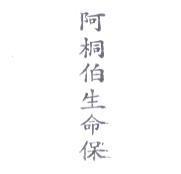 阿桐伯生命保